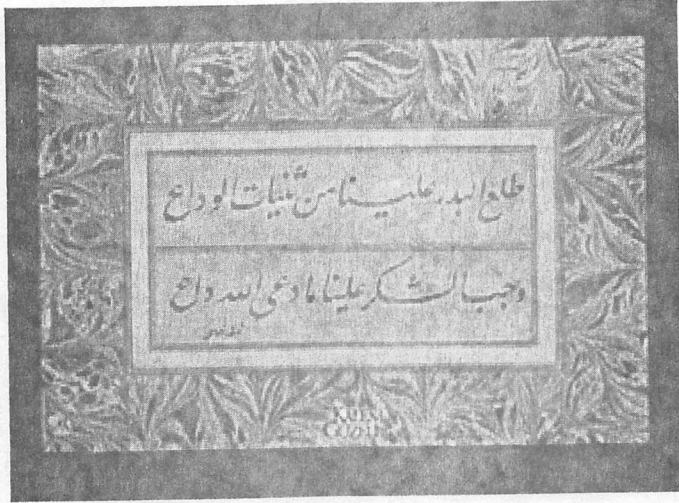 طلع البدر علينا من ثنيات الوداع
وجب الشكر علينا ما دعى الله داع